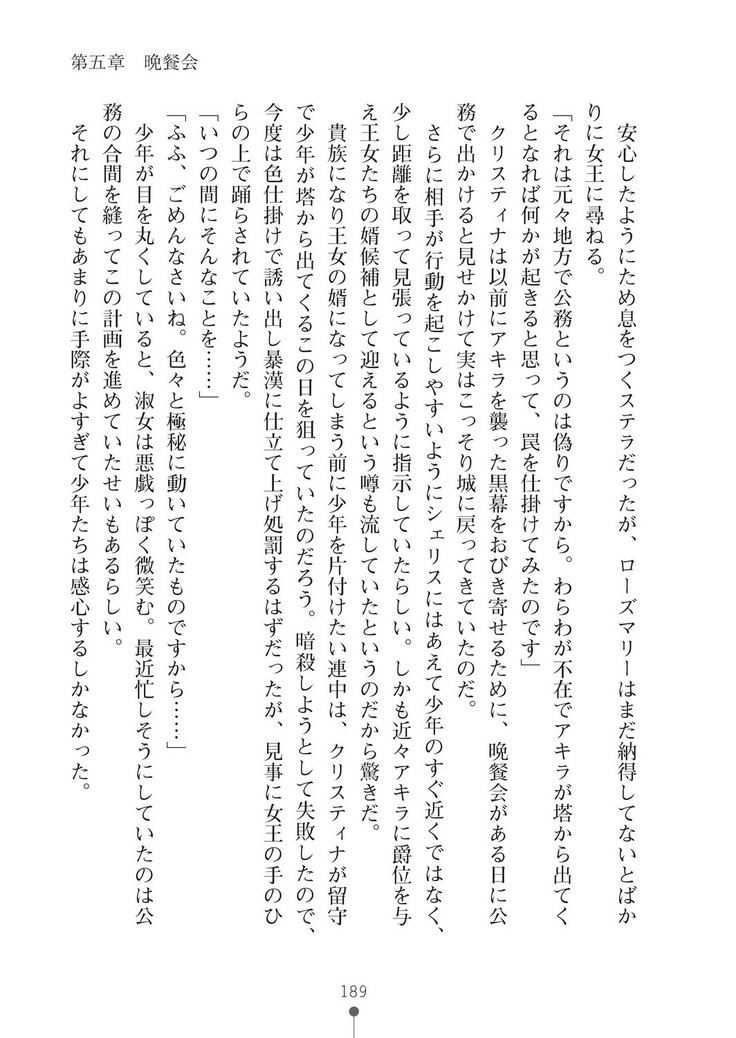 第五章　晩餐会
　安心したようにため息をつくステラだったが、ローズマリーはまだ納得してないとばか
りに女王に尋ねる。
「それは元々地方で公務というのは偽りですから。わらわが不在でアキラが塔から出てく
るとなれば何かが起きると思って、罠を仕掛けてみたのです」
　クリスティナは以前にアキラを襲った黒幕をおびき寄せるために、晩餐会がある日に公
務で出かけると見せかけて実はこっそり城に戻ってきていたのだ。
　さらに相手が行動を起こしやすいようにシェリスにはあえて少年のすぐ近くではなく、
少し距離を取って見張っているように指示していたらしい。しかも近々アキラに爵位を与
え王女たちの婿候補として迎えるという噂も流していたというのだから驚きだ。
　貴族になり王女の婿になってしまう前に少年を片付けたい連中は、クリスティナが留守
で少年が塔から出てくるこの日を狙っていたのだろう。暗殺しようとして失敗したので、
今度は色仕掛けで誘い出し暴漢に仕立て上げ処罰するはずだったが、見事に女王の手のひ
らの上で踊らされていたようだ。
「いつの間にそんなことを……」
「ふふ、ごめんなさいね。色々と極秘に動いていたものですから……」
　少年が目を丸くしていると、淑女は悪戯っぽく微笑む。最近忙しそうにしていたのは公
務の合間を縫ってこの計画を進めていたせいもあるらしい。
　それにしてもあまりに手際がよすぎて少年たちは感心するしかなかった。
189